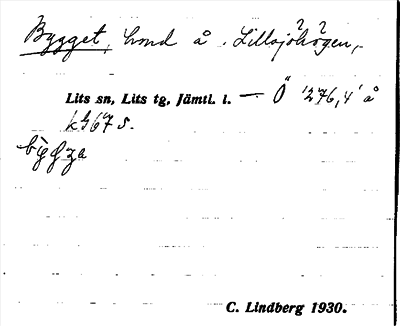 Bygget, hmd å Lillsjöhögen,
Lits sn, Lits tg, Jämtl. l. — Ö '276,4' å
kg 67 s.
C. Lindberg 1930.